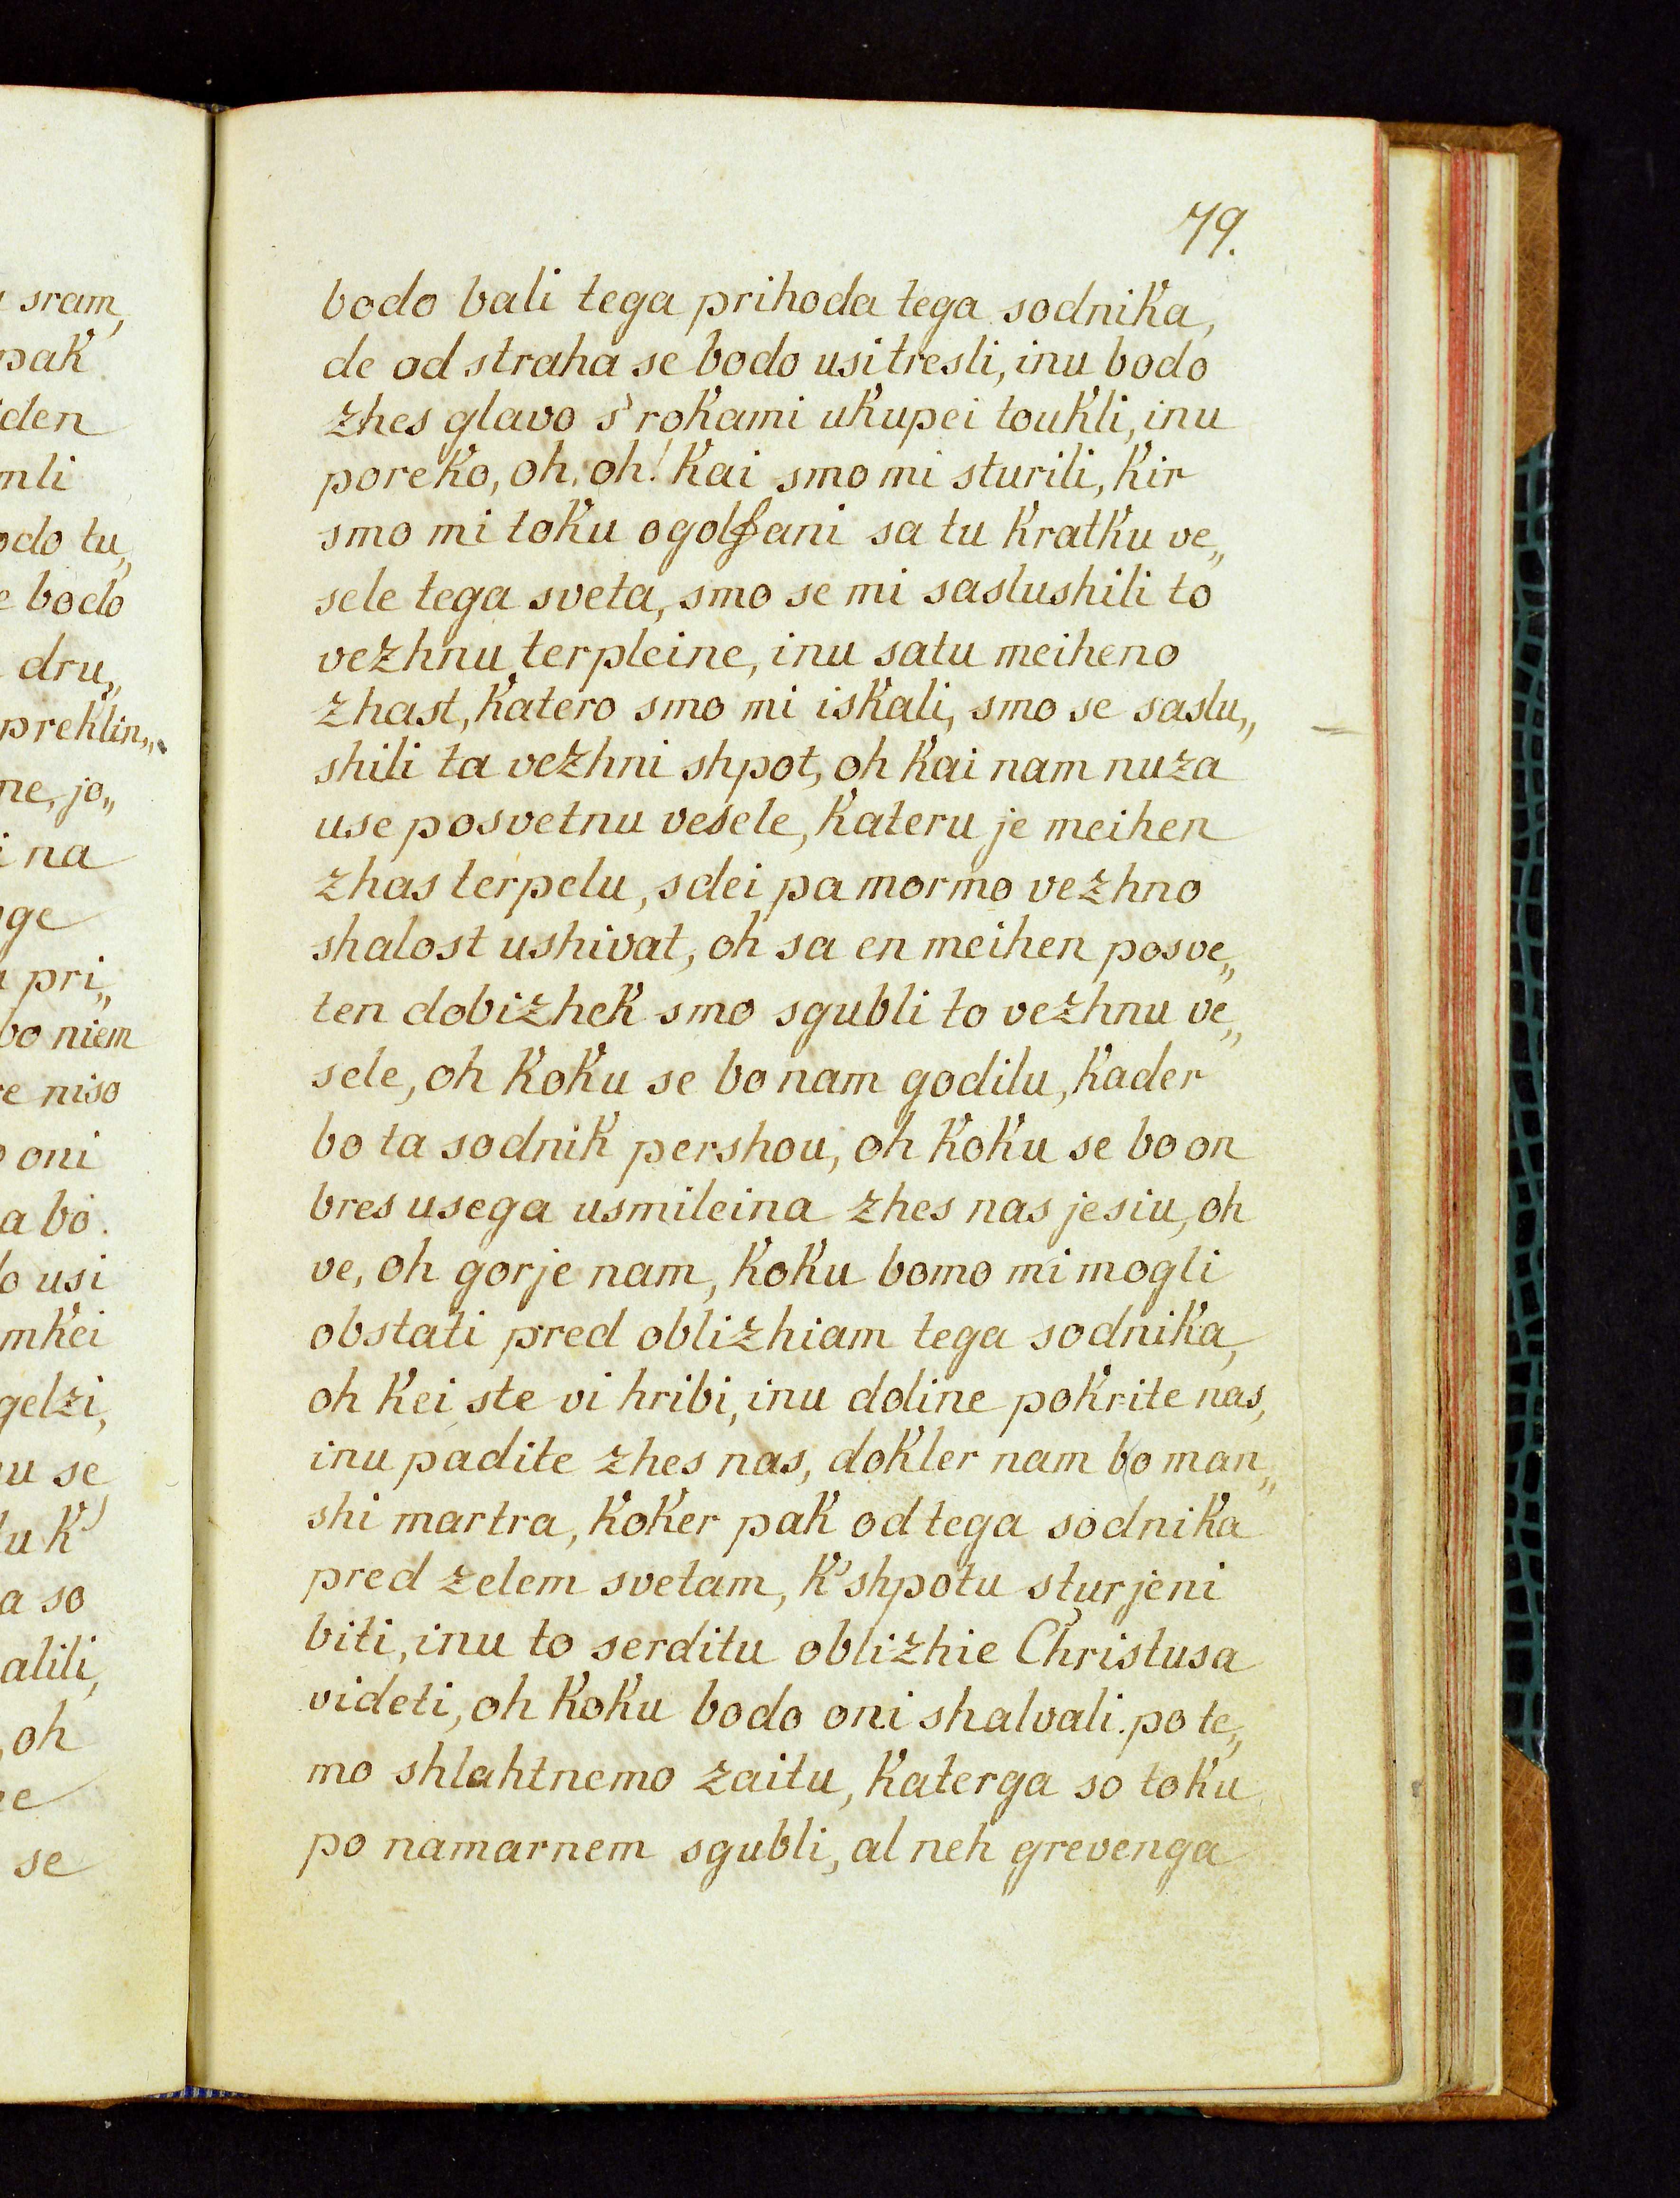 79.
bodo bali tega prihoda tega sodnika,
de od straha se bodo usi tresli, inu bodo
zhes glavo s' rokami ukupei toukli, inu
poreko, oh, oh! kai smo mi sturili, kir
smo mi toku ogolfani sa tu kratku ve„
sele tega sveta, smo se mi saslushili to
vezhnu terpleine, inu satu meiheno
zhast, katero smo mi iskali, smo se saslu„
shili ta vezhni shpot, oh kai nam nuza
use posvetnu vesele, kateru je meihen
zhas terpelu, sdei pa mormo vezhno
shalost ushivat, oh sa en meihen posve„
ten dobizhek smo sgubli to vezhnu ve„
sele, oh koku se bo nam godilu, kader
bo ta sodnik pershou, oh koku se bo on
bres usega usmileina zhes nas jesiu, oh
ve, oh gorje nam, koku bomo mi mogli
obstati pred oblizhiam tega sodnika,
oh kei ste vi hribi, inu doline pokrite nas,
inu padite zhes nas, dokler nam bo man„
shi martra, koker pak od tega sodnika
pred zelem svetam, k' shpotu sturjeni
biti, inu to serditu oblizhie Christusa
videti, oh koku bodo oni shalvali po te„
mo shlahtnemo zaitu, katerga so toku
po namarnem sgubli, al neh grevenga
sram,
pak
den
mli
odo tu„
e bodo
dru„
preklin„
ne, jo„
i na
ge
pri„
bo niem
re niso
oni
a bo.
o usi
mkei
gelzi,
u se
u k'
a so
alili,
oh
e
se